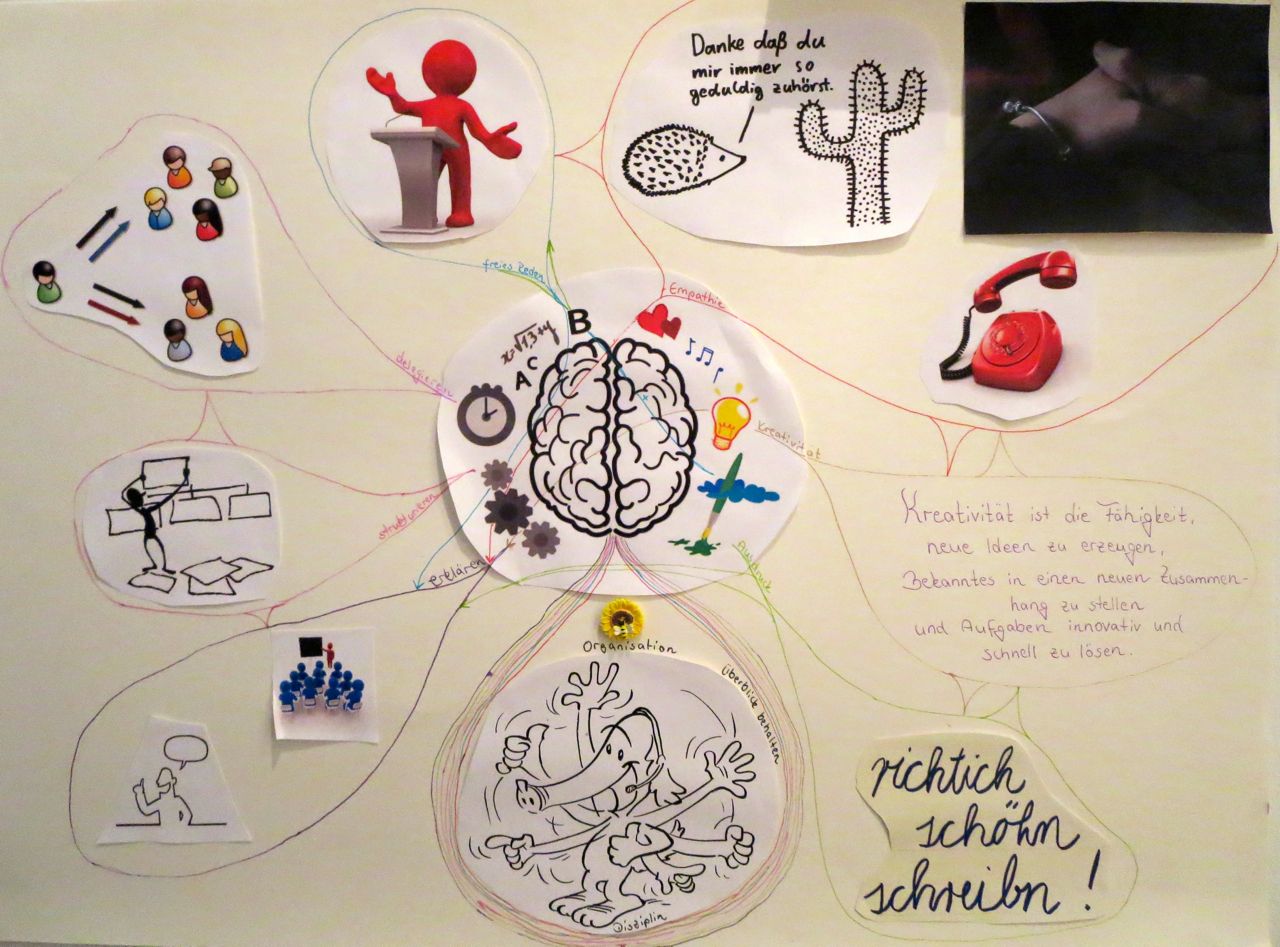 Danke daß du
mir immer so
geduldig zuhörst.
freies Reden
Empathie
B
x=√13+y
A C
delegieren
Kreativität
strukturieren
erklären
Ausdruck
Kreativität ist die Fähigkeit,
neue Ideen zu erzeugen,
Bekanntes in einen neuen Zusammen-
hang zu stellen
und Aufgaben innovativ und
schnell zu lösen.
Organisation
Überblick behalten
Disziplin
richtich
schöhn
schreibn !